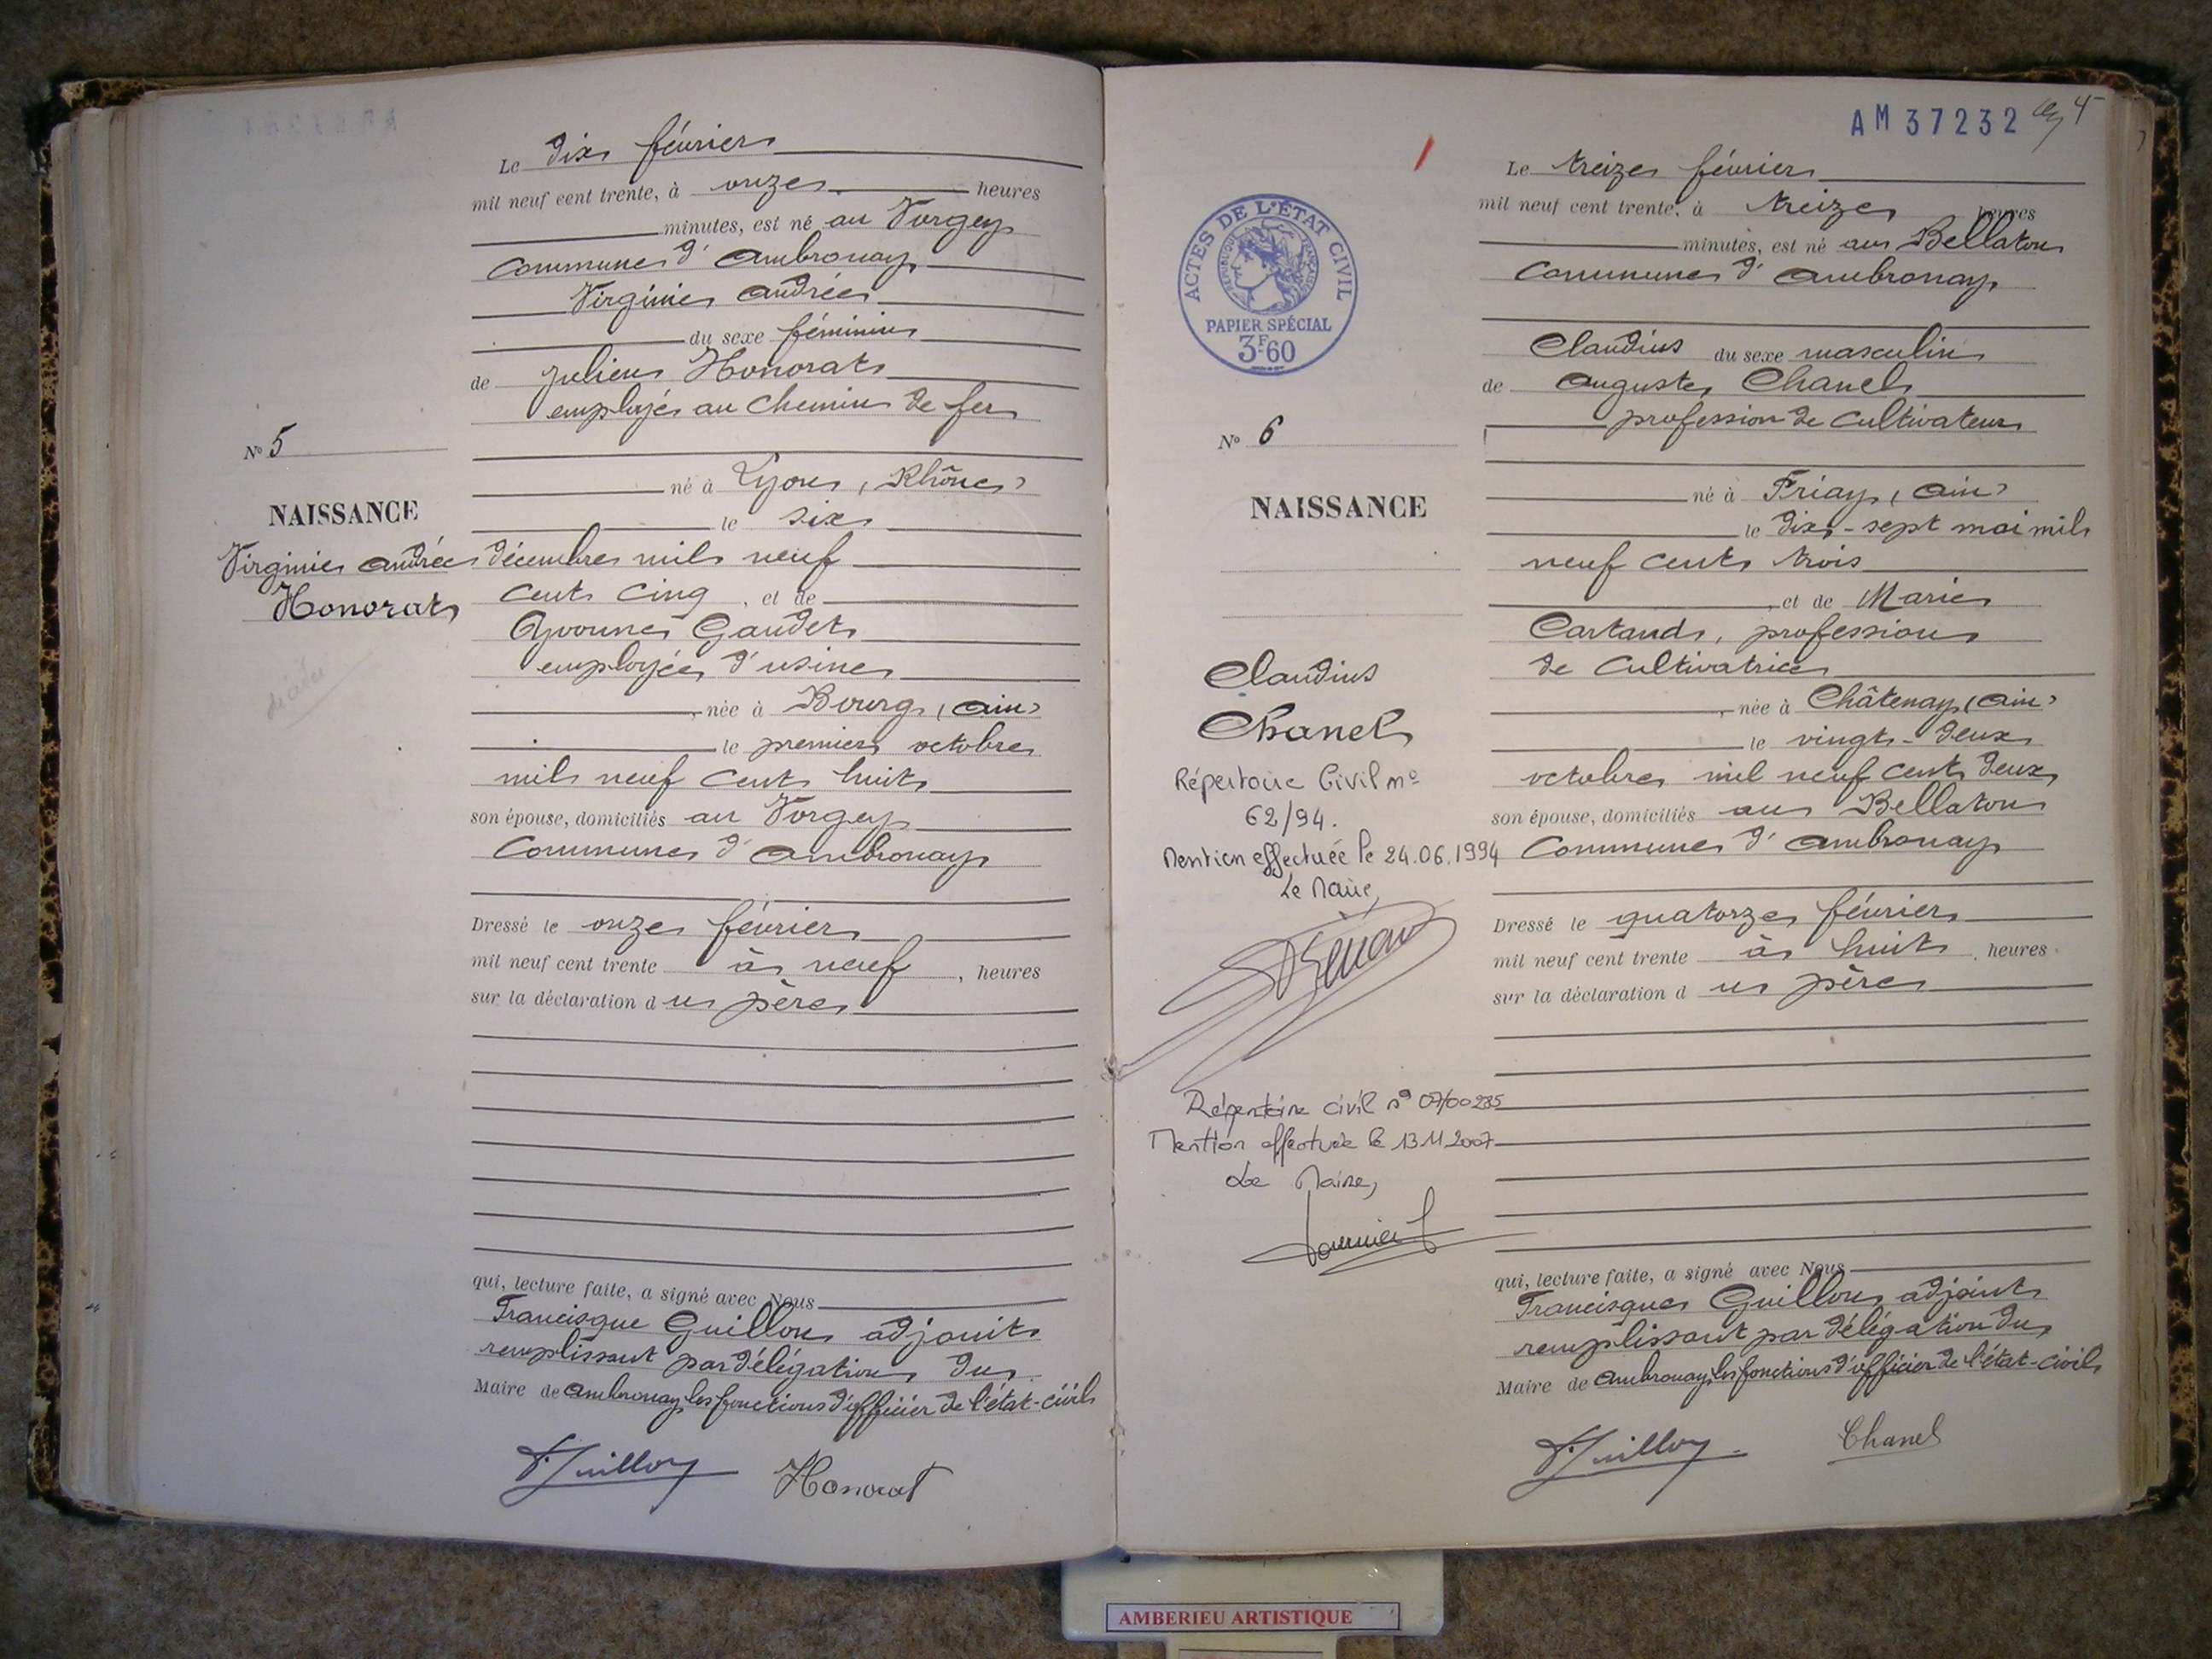 Le dix février
mil neuf cent trente, à onze heures
minutes, est né au Vorgey
Commune d'Ambronay
Virginie Andrée
du sexe féminin
de Julien Honorat
employé au Chemin de fer
né à Lyon, (Rhône)
le six
décembre mil neuf
cent cinq, et de
Yvonne Gaudet
employée d'usine
, née à Bourg, (Ain)
le premier octobre
mil neuf cent huit
son épouse, domiciliés au Vorgey
Commune d'Ambronay
Dressé le onze février
mil neuf cent trente à neuf, heures
sur la déclaration du père
qui, lecture faite, a signé avec Nous
Francisque Guillon adjoint
remplissant par délégation du
Maire de Ambronay, les fonctions d'officier de l'état-civil
Honorat
N° 5
NAISSANCE
Virginie Andrée
Honorat
décédée
AM 37232
ACTES DE L'ÉTAT CIVIL
RÉPUBLIQUE FRANÇAISE
PAPIER SPÉCIAL
3F60
N° 6
NAISSANCE
Claudius
Chanel
Répertoire Civil n°
62/94.
Mention effectuée le 24.06.1994
Le Maire,
Répertoire civil n° 07/00235
Mention effectuée le 13.11.2007
Le Maire,
Le treize février
mil neuf cent trente, à treize heures
minutes, est né au Bellaton
Commune d'Ambronay
Claudius du sexe masculin
de Auguste Chanel
profession de cultivateur
né à Priay, (Ain)
le dix-sept mai mil
neuf cent trois
, et de Marie
Cartand, profession
de Cultivatrice
, née à Châtenay, (Ain)
le vingt-deux
octobre mil neuf cent deux
son épouse, domiciliés au Bellaton
Commune d'Ambronay
Dressé le quatorze février
mil neuf cent trente à huit, heures
sur la déclaration du père
qui, lecture faite, a signé avec Nous
Francisque Guillon adjoint
remplissant par délégation du
Maire de Ambronay, les fonctions d'officier de l'état-civil
Chanel
AMBERIEU ARTISTIQUE